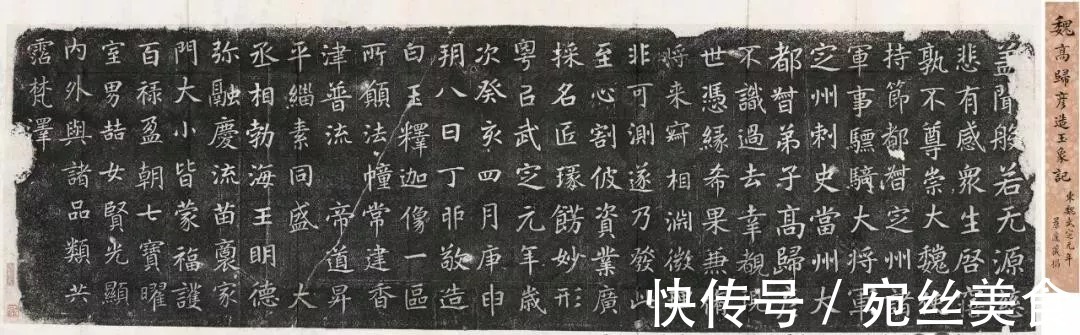 魏高歸彥造玉象記
東魏武定元年
盖聞般若无源慈
悲有感眾生啓
孰不尊崇大魏
持節都督定州
軍事驃騎大將軍
定州刺史當州大
都督弟子高歸
不識過去幸覩現
世憑緣希果兼
将来寂相淵微
非可測遂乃發此
至心割彼資業廣
採名匠琢餝妙形
粵以武定元年歲
次癸亥四月庚申
朔八日丁卯敬造
白玉釋迦像一區
所願法幢常建香
津普流 帝道昇
平緇素同盛 大
丞相勃海王明德
弥融慶流苗裏家
門大小皆蒙福護
百禄盈朝七寶曜
室男喆女賢光顯
内外與諸品類共
霑梵澤
快传号 / 宛丝美食